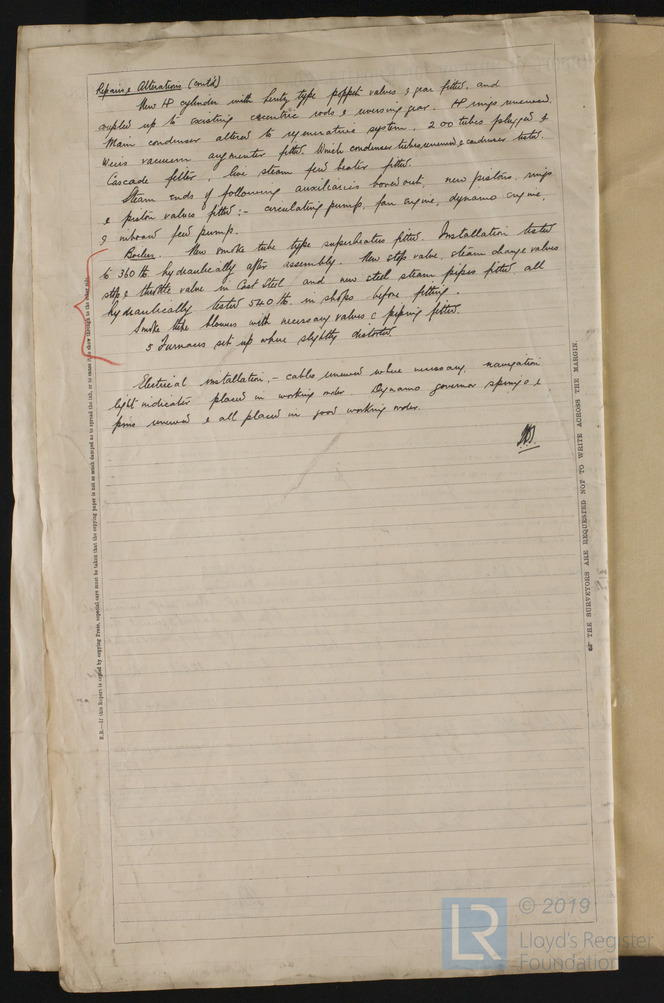 Repairs & Alterations (cont'd)
New HP cylinder with Lentz type poppet valves & gear fitted, and
coupled up to existing eccentric rods & reversing gear. HP rings renewed.
Main condenser altered to regenerative system. 200 tubes plugged &
Weirs vacuum augmenter fitted. Winch condenser tubes renewed & condenser tested.
Cascade filter, live steam feed heater fitted.
Steam ends of following auxiliaries bored out, new pistons, rings
& piston valves fitted :- circulating pump, fan engine, dynamo engine,
& inboard feed pump.
Boilers. New smoke tube type superheaters fitted. Installation tested
to 360 lb hydraulically after assembly. New stop valve, steam change valves
stop & throttle valve in Cast Steel and new steel steam pipes fitted all
hydraulically tested 540 lb. in shops before fitting.
Smoke tube blowers with necessary valves & piping fitted.
5 Furnaces set up where slightly distorted
Electrical installation,- cables renewed where necessary, navigation
light indicator placed in working order. Dynamo governor springs &
pins renewed & all placed in good working order.
N.B.—If this Report is copied by copying Press, especial care must be taken that the copying paper is not so much damped as to spread the ink, or to cause it to show through to the other side.
THE SURVEYORS ARE REQUESTED NOT TO WRITE ACROSS THE MARGIN.
LR
© 2019
Lloyd's Register
Foundation